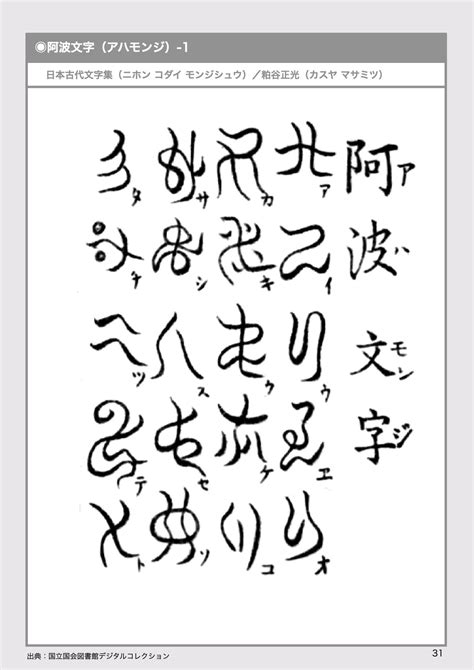 ◉阿波文字（アハモンジ）-1
日本古代文字集（ニホン コダイ モンジシュウ）／粕谷正光（カスヤ マサミツ）
阿波文字
アハモンジ
アイウヱオ
カキクケコ
サシスセソ
タチツテト
出典：国立国会図書館デジタルコレクション
31